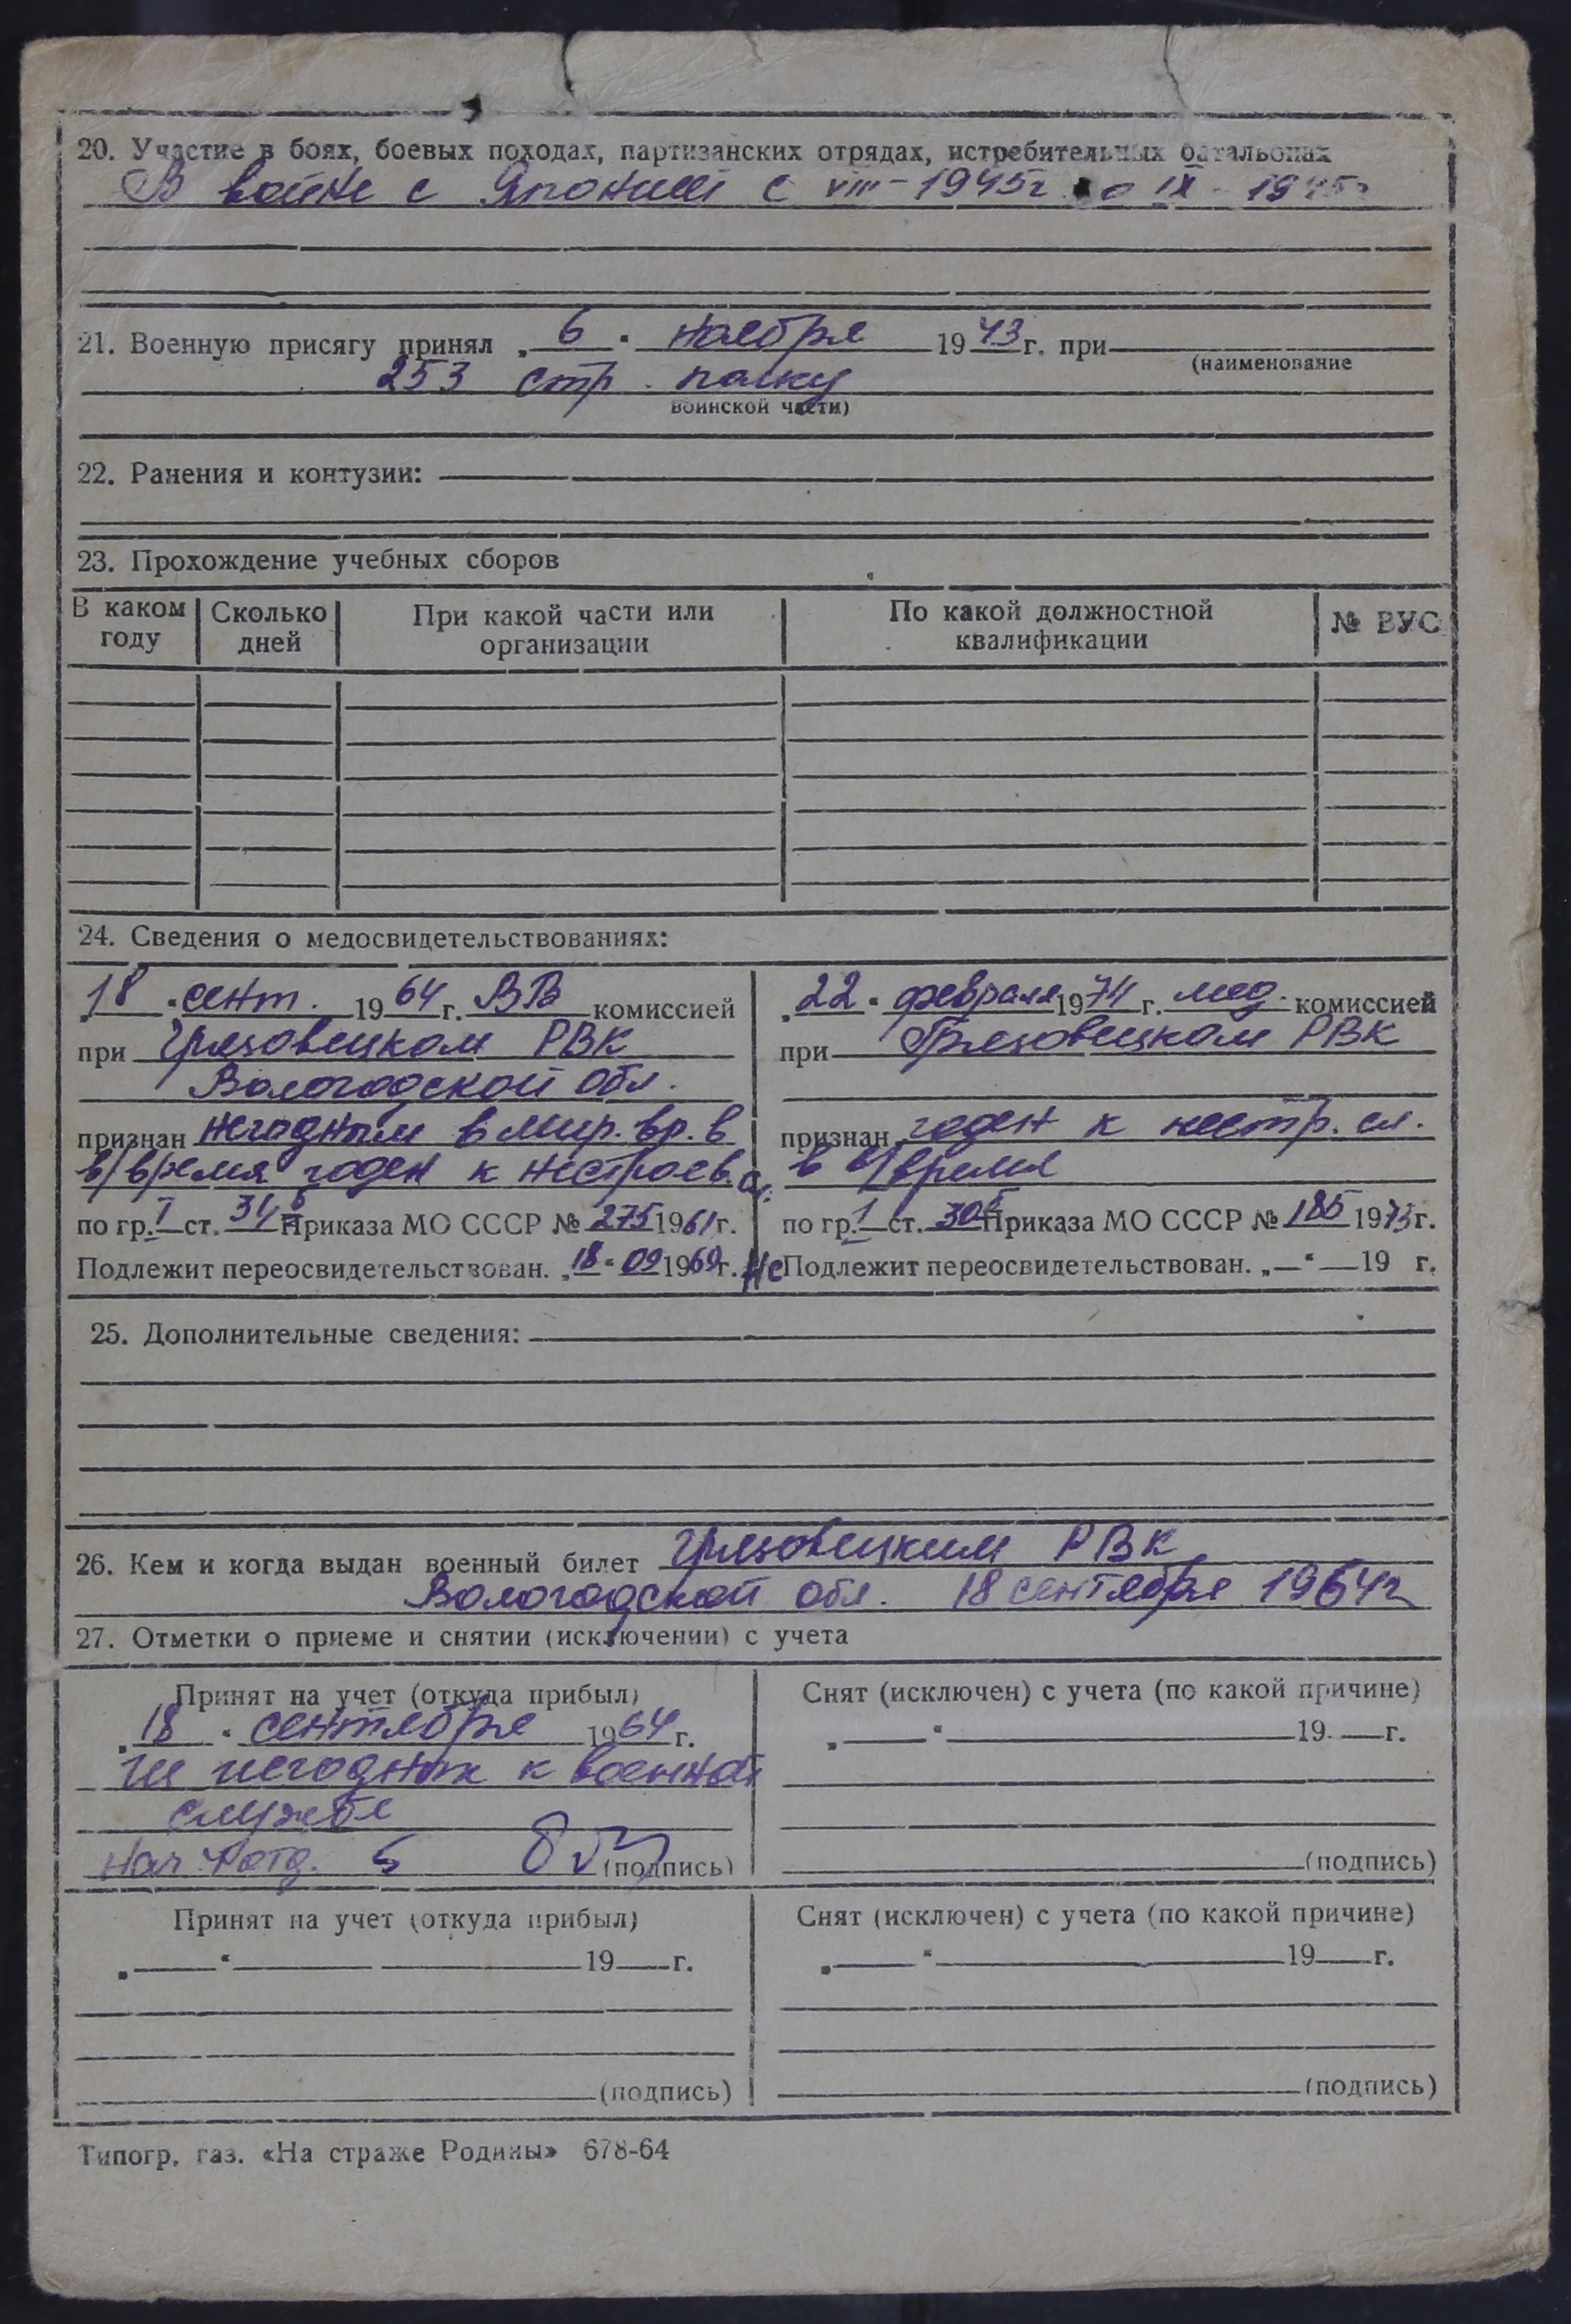 20. Участие в боях, боевых походах, партизанских отрядах, истребительных батальонах
В войне с Японией с VIII-1945г по IX-1945г
21. Военную присягу принял „6“ ноября 1943 г. при
(наименование
253 стр. полку
воинской части)
22. Ранения и контузии:
23. Прохождение учебных сборов
В каком году | Сколько дней | При какой части или организации | По какой должностной квалификации | № ВУС
24. Сведения о медосвидетельствованиях:
„18“ сент. 1964 г. ВВ комиссией
при Грязовецком РВК
Вологодской обл.
признан негодным в мир. вр. в
в/время годен к нестроев. сл.
по гр. I ст. 31б Приказа МО СССР № 275 1961 г.
Подлежит переосвидетельствован. „18“ 09 1969 г.
„22“ февраля 1974 г. мед. комиссией
при Грязовецком РВК
признан годен к нестр. сл.
в в/время
по гр. 1 ст. 30б Приказа МО СССР № 185 1973 г.
Не Подлежит переосвидетельствован. „—“ — 19 г.
25. Дополнительные сведения:
26. Кем и когда выдан военный билет Грязовецким РВК
Вологодской обл. 18 сентября 1964г
27. Отметки о приеме и снятии (исключении) с учета
Принят на учет (откуда прибыл)
„18“ сентября 1964 г.
из негодных к военной
службе
Нач. 4 отд.
(подпись)
Снят (исключен) с учета (по какой причине)
„ “ 19 г.
(подпись)
Принят на учет (откуда прибыл)
„ “ 19 г.
(подпись)
Снят (исключен) с учета (по какой причине)
„ “ 19 г.
(подпись)
Типогр. газ. «На страже Родины» 678-64